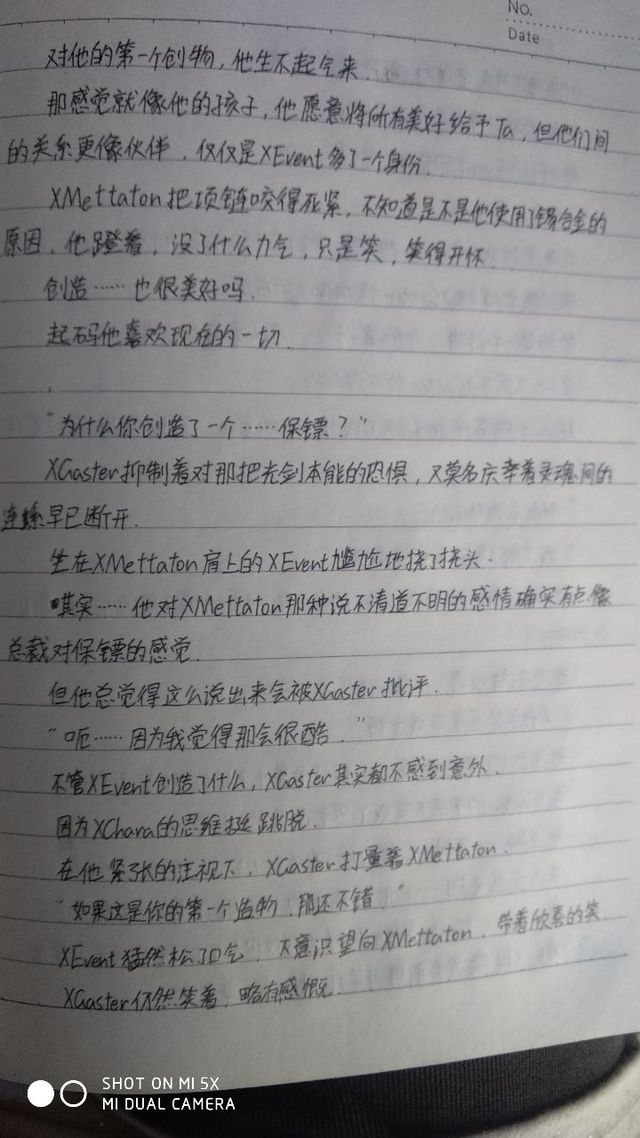 No.
Date
对他的第一个创物，他生不起气来.
那感觉就像他的孩子，他愿意将所有美好给予Ta，但他们间
的关系更像伙伴，仅仅是XEvent多了一个身份.
XMettaton把项链咬得死紧，不知道是不是他使用了锡合金的
原因，他蹬着，没了什么力气，只是笑，笑得开怀.
创造……也很美好吗.
起码他喜欢现在的一切.
“为什么你创造了一个……保镖？”
XGaster抑制着对那把光剑本能的恐惧，又莫名庆幸着灵魂间的
连系早已断开.
坐在XMettaton肩上的XEvent尴尬地挠了挠头.
其实……他对XMettaton那种说不清道不明的感情确实有点像
总裁对保镖的感觉.
但他总觉得这么说出来会被XGaster批评.
“呃……因为我觉得那会很酷.”
不管XEvent创造了什么，XGaster其实都不感到意外.
因为XChara的思维挺跳脱.
在他紧张的注视下，XGaster打量着XMettaton.
“如果这是你的第一个造物，那还不错.”
XEvent猛然松了口气，下意识望向XMettaton，带着欣喜的笑.
XGaster仍然笑着，略有感慨.
SHOT ON MI 5X
MI DUAL CAMERA